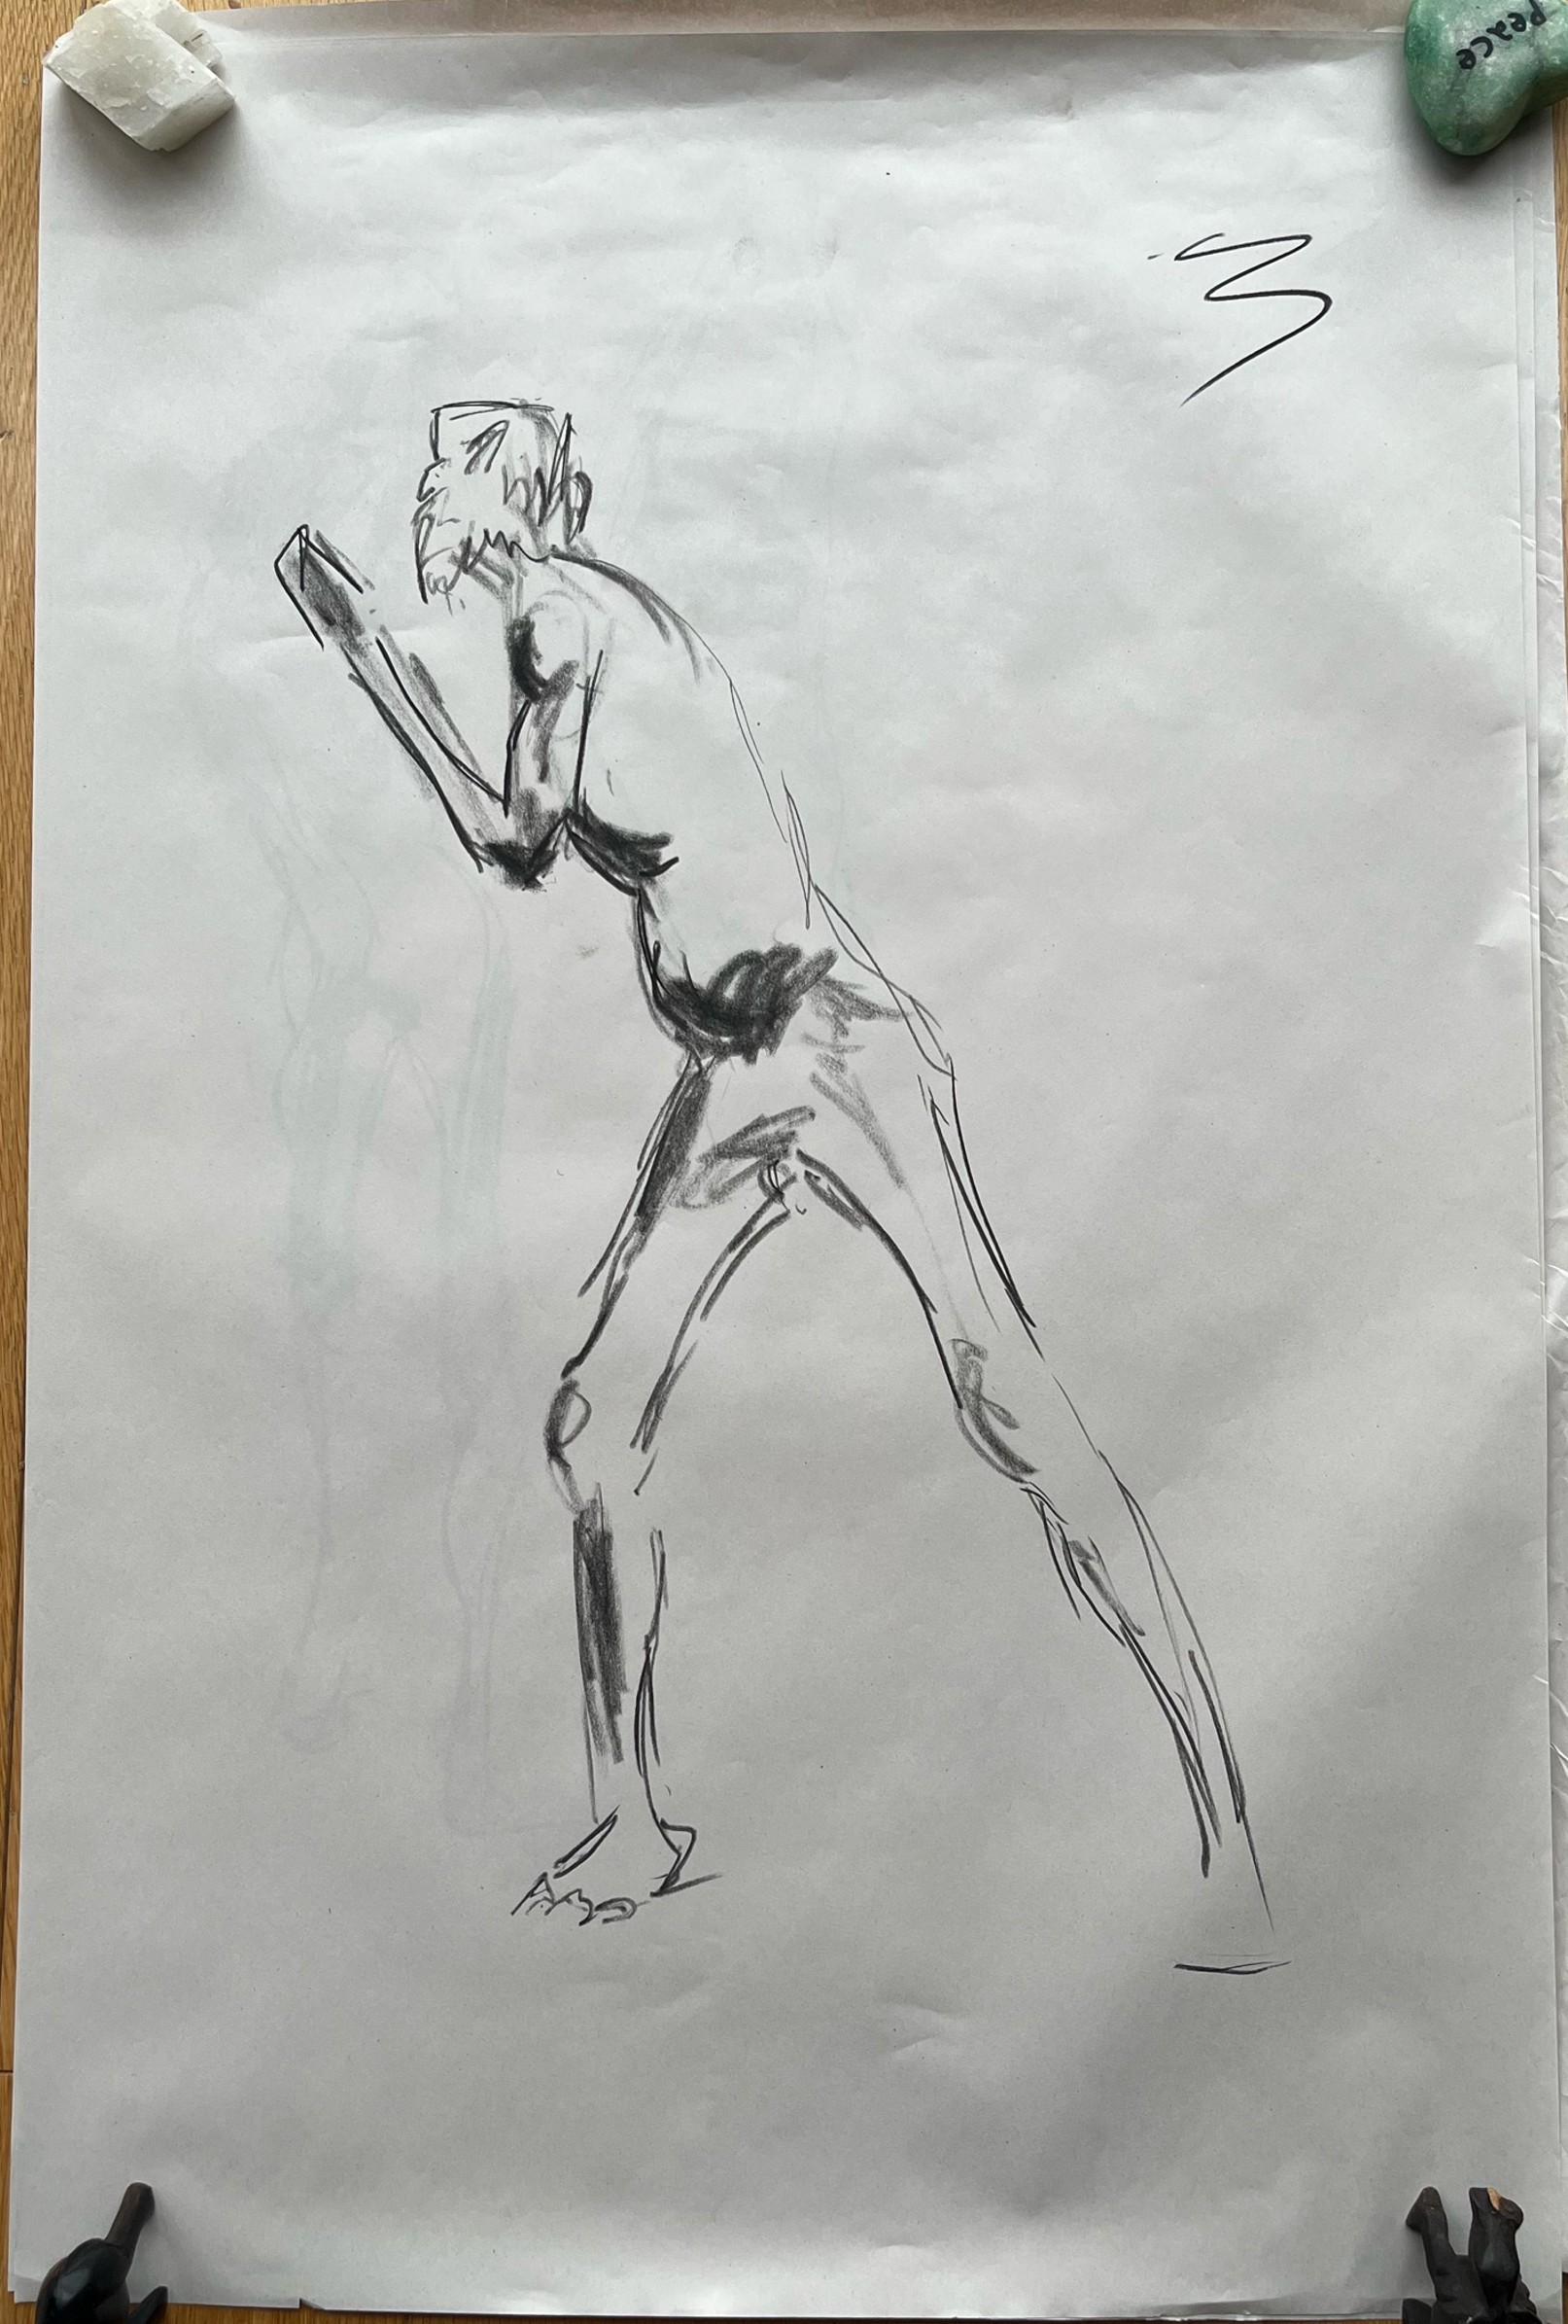 Peace
3